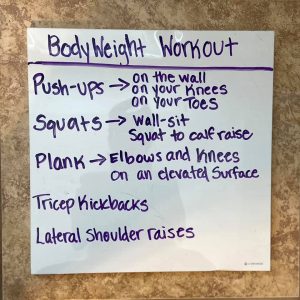 BodyWeight Workout
Push-ups → on the wall
on your Knees
on your Toes
Squats → Wall-sit
Squat to calf raise
Plank → Elbows and Knees
On an elevated Surface
Tricep Kickbacks
Lateral Shoulder raises